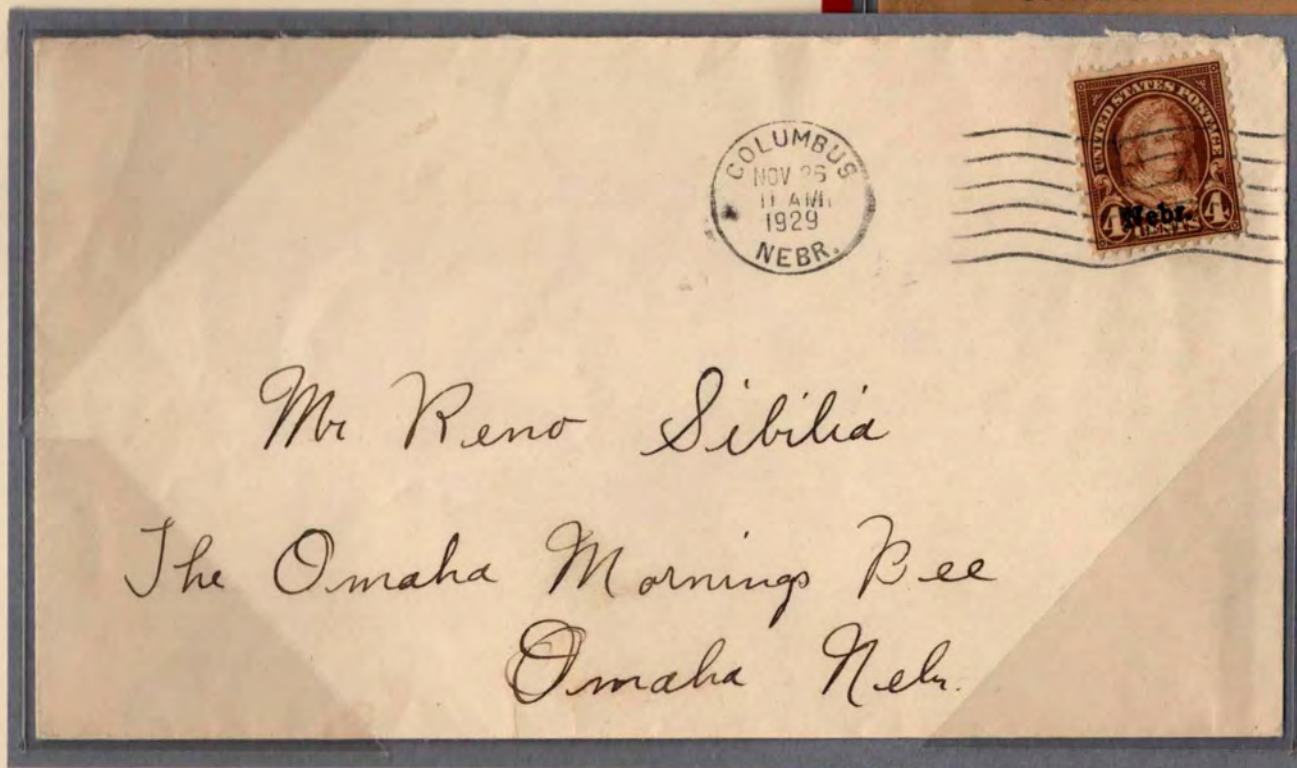 COLUMBUS
NOV 26
11 AM
1929
NEBR.
UNITED STATES POSTAGE
4 Nebr. 4
CENTS
Mr Reno Sibilia
The Omaha Morning Bee
Omaha Nebr.